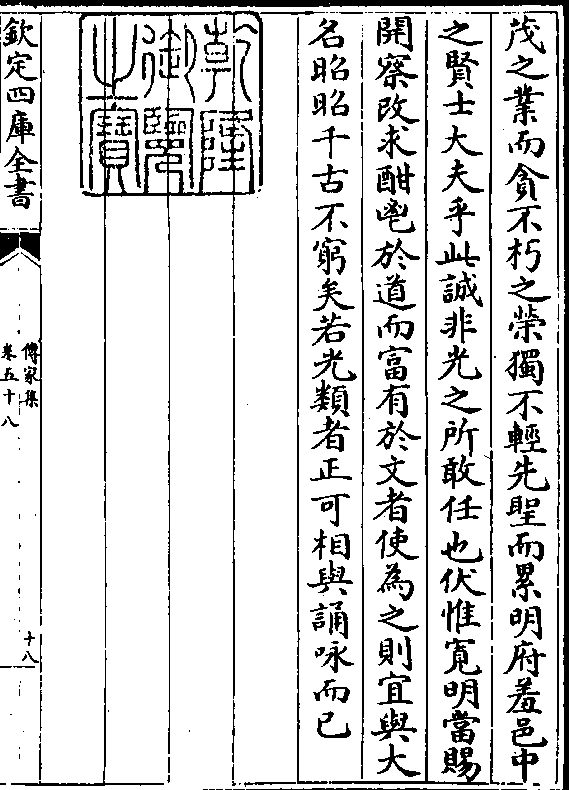 茂之業而貪不朽之榮獨不輕先聖而累明府羞邑中
之賢士大夫乎此誠非光之所敢任也伏惟寛明當賜
開察改求酣鬯於道而富有於文者使為之則宜與大
名昭昭千古不窮矣若光類者正可相與誦咏而已
乾隆
御覽
之寶
欽定四庫全書
傳家集
卷五十八
十八